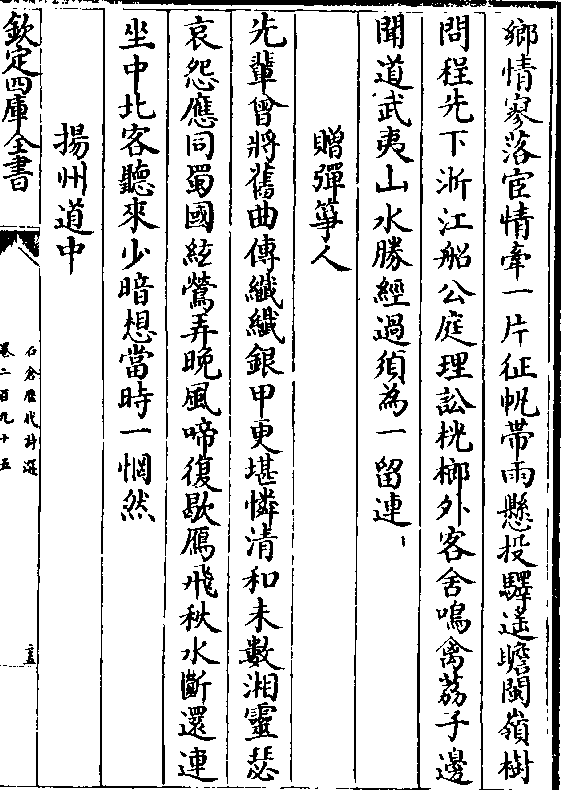 鄉情寥落宦情牽一片征帆帶雨懸投驛遙瞻閩嶺樹
問程先下浙江船公庭理訟桄榔外客舍鳴禽荔子邊
聞道武夷山水勝經過須為一留連
贈彈箏人
先輩曾將舊曲傳纖纖銀甲更堪憐清和未數湘靈瑟
哀怨應同蜀國絃鶯弄晚風啼復歇鴈飛秋水斷還連
坐中北客聽來少暗想當時一惘然
揚州道中
欽定四庫全書
石倉歷代詩選
卷二百九十五